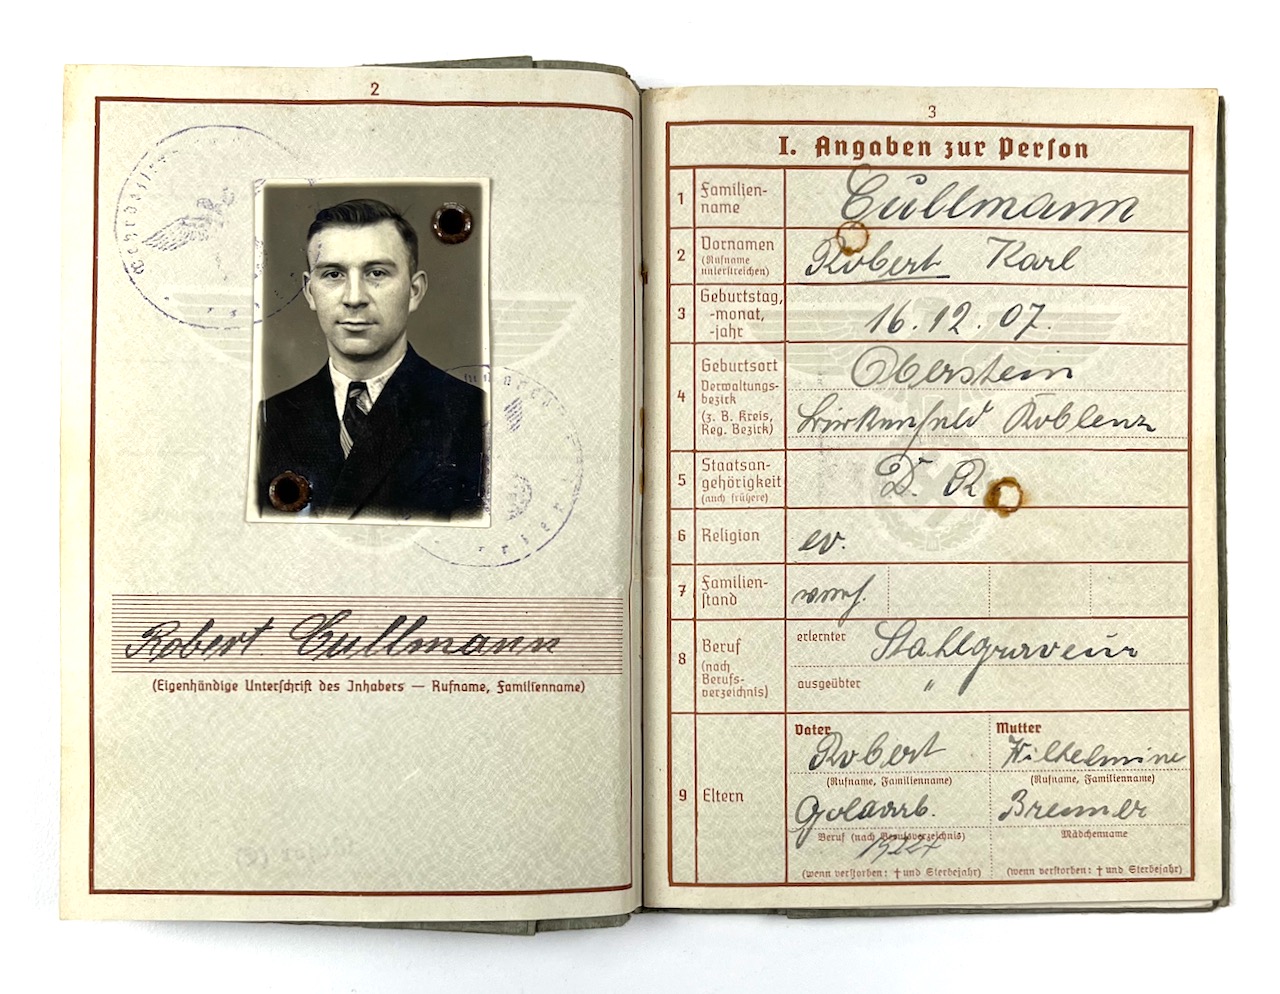 2
Robert Cullmann
(Eigenhändige Unterschrift des Inhabers — Rufname, Familienname)
3
I. Angaben zur Person
1 Familien-
name
Cullmann
2 Vornamen
(Rufname
unterstreichen)
Robert Karl
3 Geburtstag,
-monat,
-jahr
16.12.07.
4 Geburtsort
Verwaltungs-
bezirk
(z. B. Kreis,
Reg. Bezirk)
Oberstein
Birkenfeld Koblenz
5 Staatsan-
gehörigkeit
(auch frühere)
D. R
6 Religion
ev.
7 Familien-
stand
verh.
8 Beruf
(nach
Berufs-
verzeichnis)
erlernter Stahlgraveur
ausgeübter "
9 Eltern
Vater
Robert
(Rufname, Familienname)
Goldarb.
Beruf (nach Berufsverzeichnis)
(wenn verstorben: † und Sterbejahr)
Mutter
Wilhelmine
(Rufname, Familienname)
Bremmer
Mädchenname
(wenn verstorben: † und Sterbejahr)